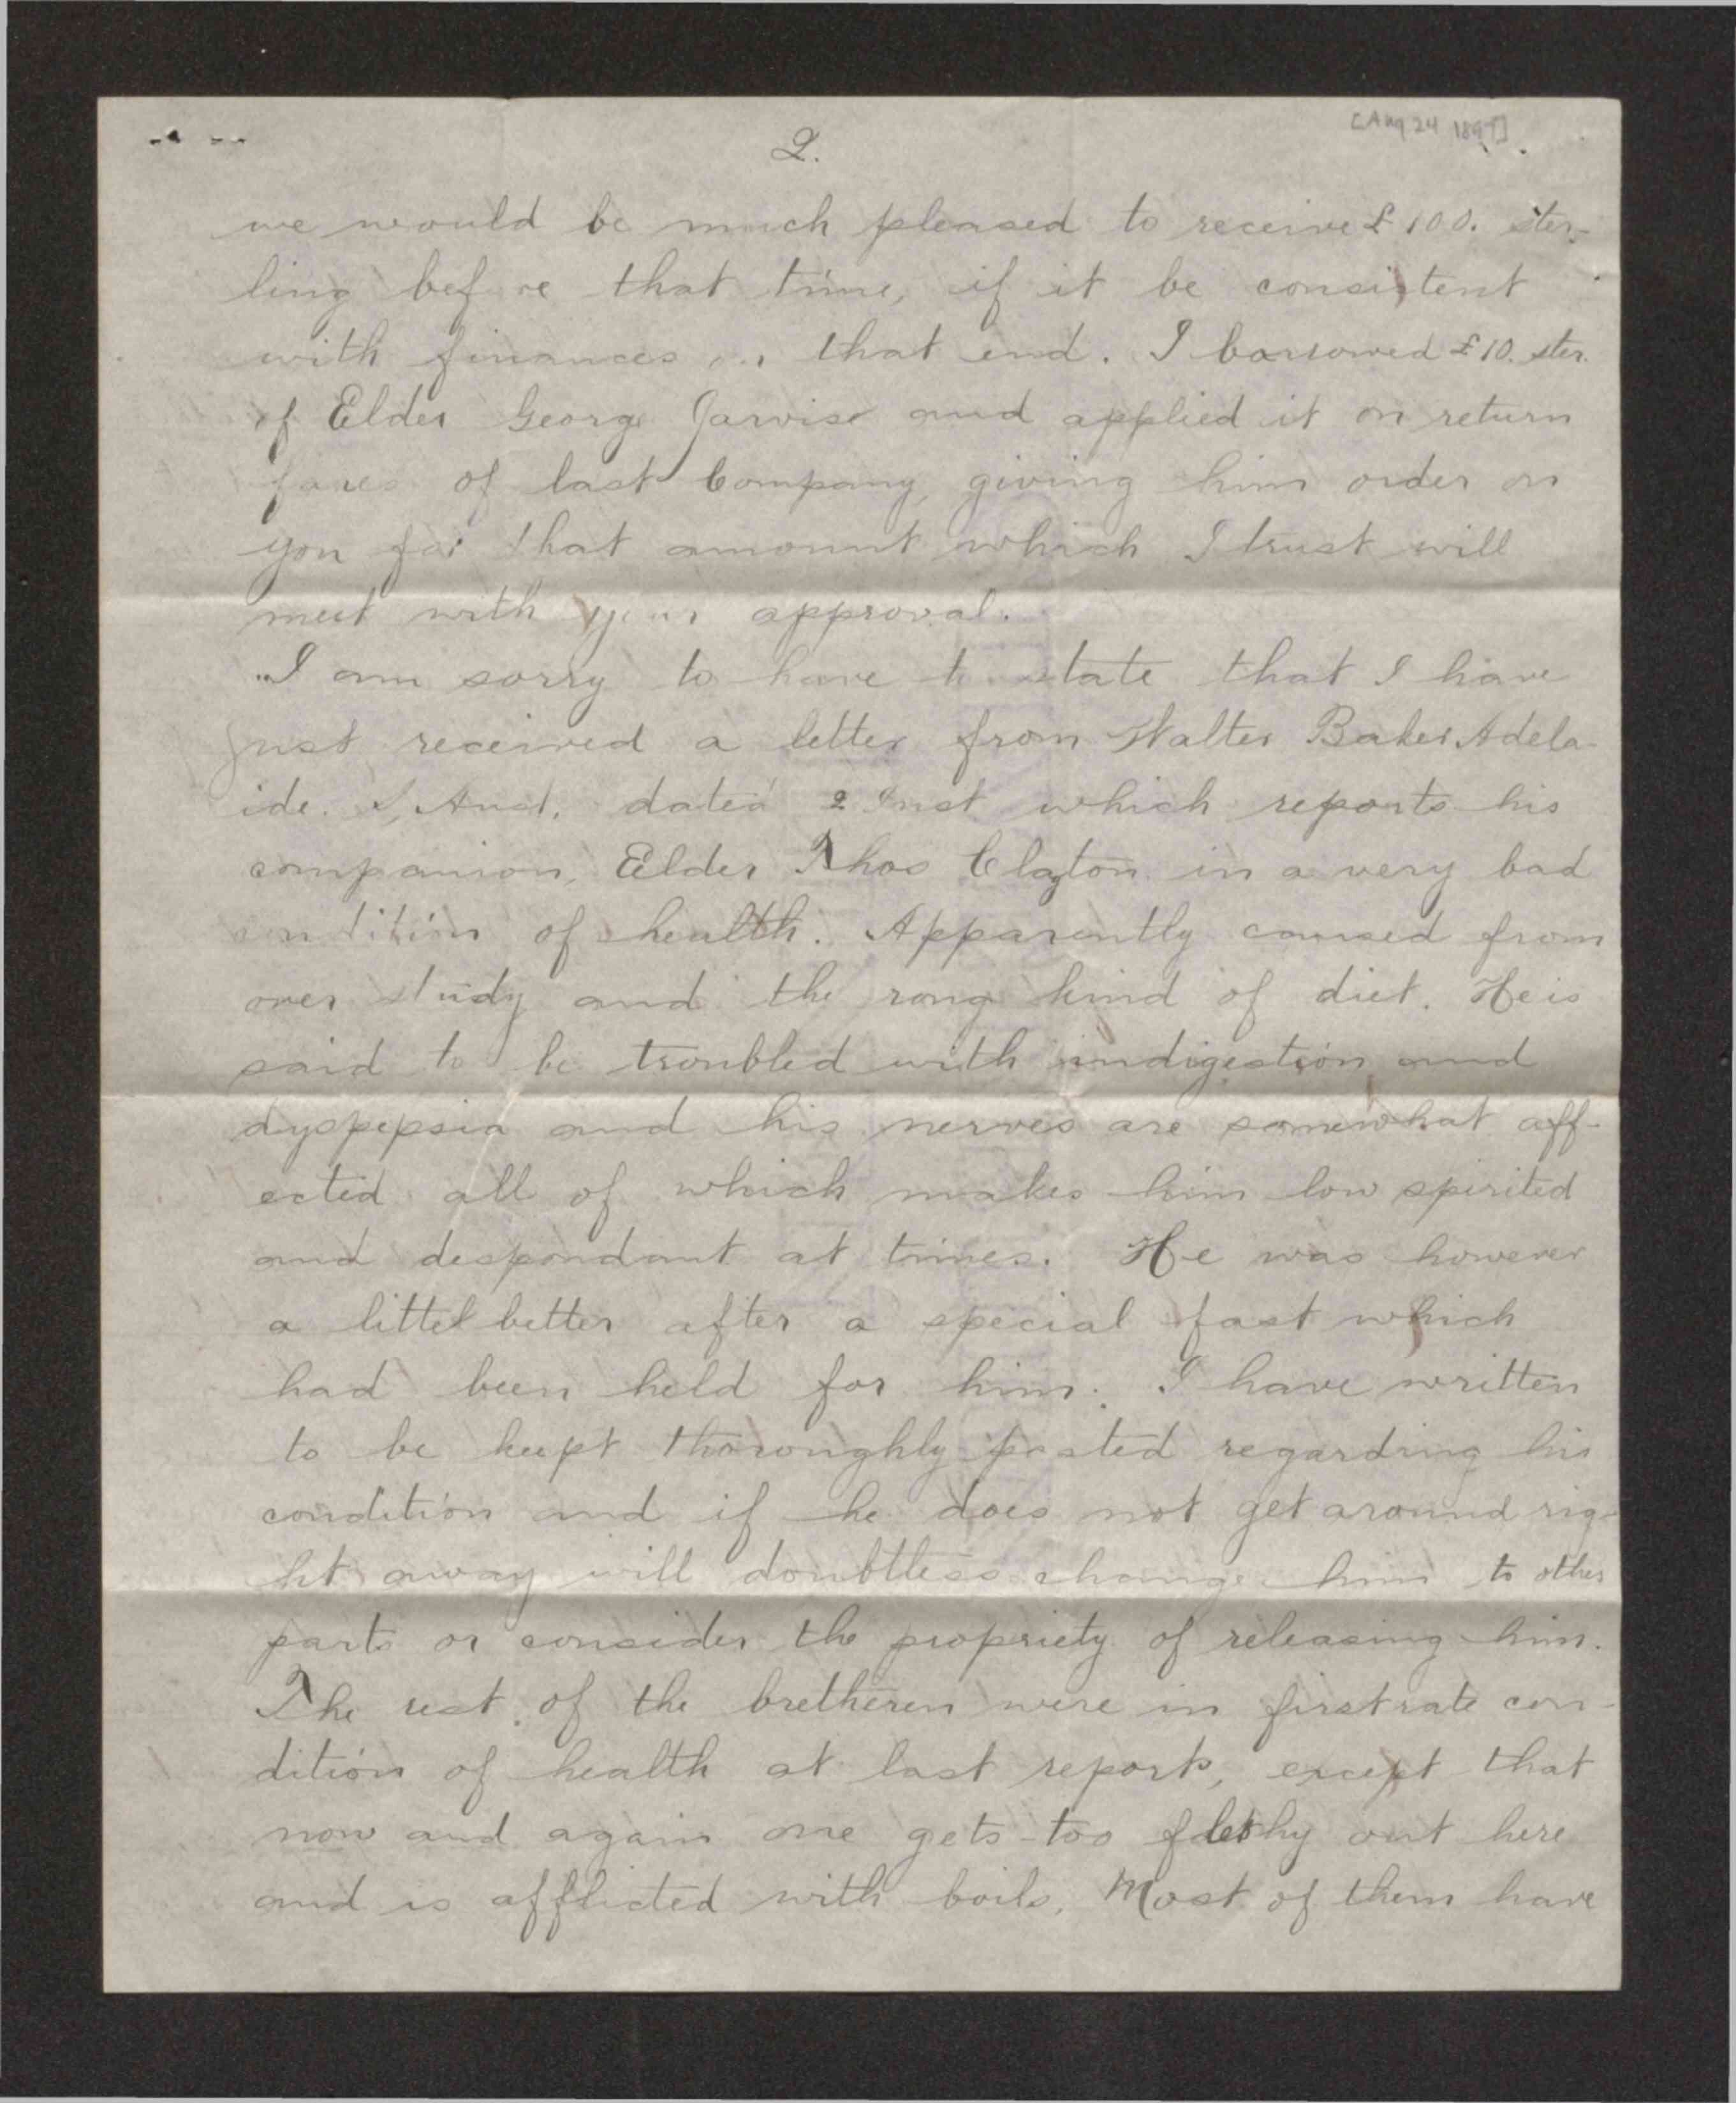 [Aug 24 1897]
2.
we would be much pleased to receive £100. ster-
ling before that time, if it be consistent
with finances on that end. I borrowed £10. ster.
of Elder George Jarvise and applied it on return
fares of last Company, giving him order on
you for that amount which I trust will
meet with your approval.
I am sorry to have to state that I have
just received a letter from Walter Baker Adela-
ide. S, Aust. dated 2 Inst which reports his
companion, Elder Thos Clayton in a very bad
condition of health. Apparently caused from
over study and the rong kind of diet. He is
said to be troubled with indigestion and
dyspepsia and his nerves are somewhat aff-
ected all of which makes him low spirited
and despondant at times. He was however
a littel better after a special fast which
had been held for him. I have written
to be keept thoroughly posted regarding his
condition and if he does not get around rig-
ht away will doubtless change him to other
parts or consider the propriety of releasing him.
The rest of the bretheren were in firstrate con-
dition of health at last reports, except that
now and again one gets too fleshy out here
and is afflicted with boils. Most of them have